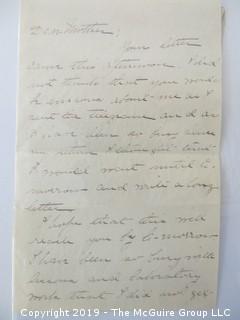 Dear Mother;
Your letter
came this afternoon. I did
not think that you would
be anxious about me as I
sent the telegram and as
I have been so busy since
my return I thought that
I would wait until to-
morrow and write a long
letter.
I hope that this will
reach you by to-morrow
I have been so busy with
and laboratory
work that I did not get
Copyright 2019 - The McGuire Group LLC